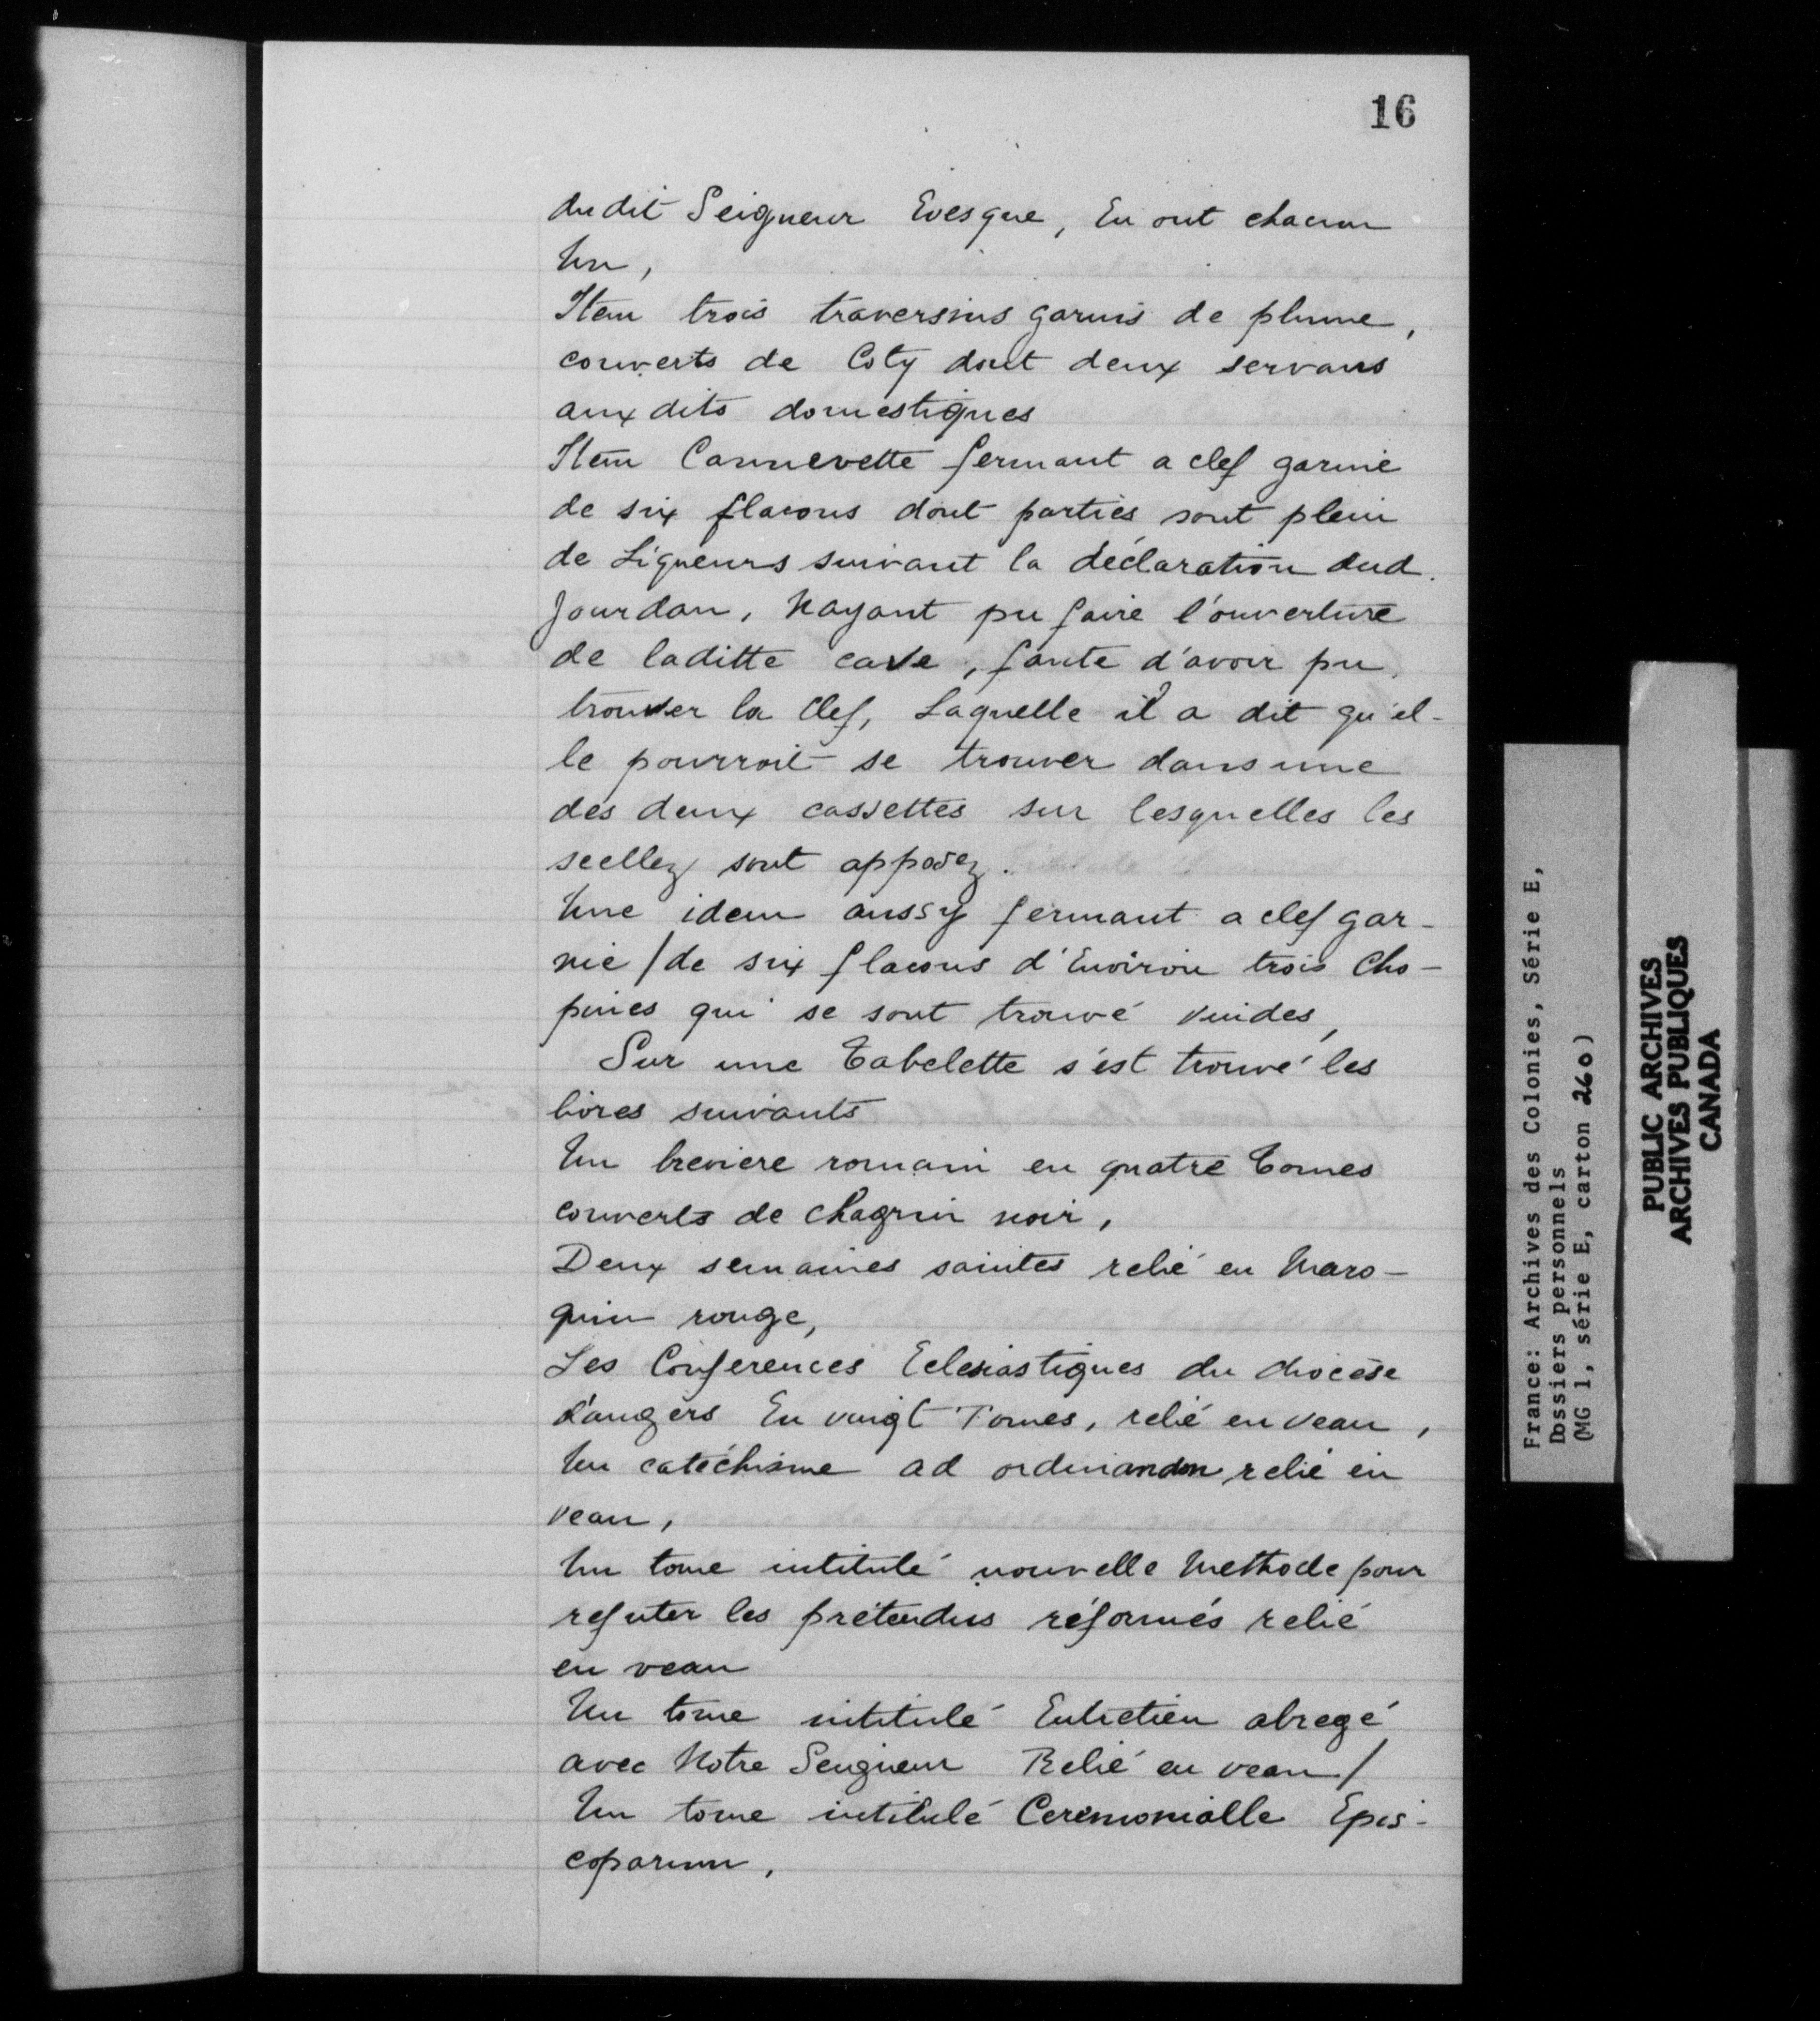 16
dudit Seigneur Evesque, En ont chacun
Un,
Item trois traversins garnis de plume,
couverts de Coty dont deux servans
aux dits domestiques
Item Cannevette fermant a clef garnie
de six flacons dont parties sont plein
de Liqueurs suivant la déclaration dud.
Jourdan, Nayant pu faire l'ouverture
de laditte cave, faute d'avoir pu
trouver la Clef, Laquelle il a dit qu'el-
le pourroit se trouver dans une
des deux cassettes sur lesquelles les
scellez sont apposez.
Une idem aussy fermant a clef gar-
nie / de six flacons d'Environ trois Cho-
pines qui se sont trouvé vuides,
Sur une Tabelette s'est trouvé les
livres suivants
Un breviere romain en quatre Tomes
couverts de chagrin noir,
Deux semaines saintes relié en Maro-
quin rouge,
Les Conferences Eclesiastiques du diocèse
d'angers En vingt Tomes, relié en veau,
Un catéchisme ad ordinandon relié en
veau,
Un tome intitulé nouvelle Methode pour
refuter les prétendus réformés relié
en veau
Un tome intitulé Entretien abregé
avec Notre Seigneur Relié en veau /
Un tome intitulé Ceremonialle Epis-
coparum,
France: Archives des Colonies, Série E,
Dossiers personnels
(MG 1, série E, carton 260)
PUBLIC ARCHIVES
ARCHIVES PUBLIQUES
CANADA